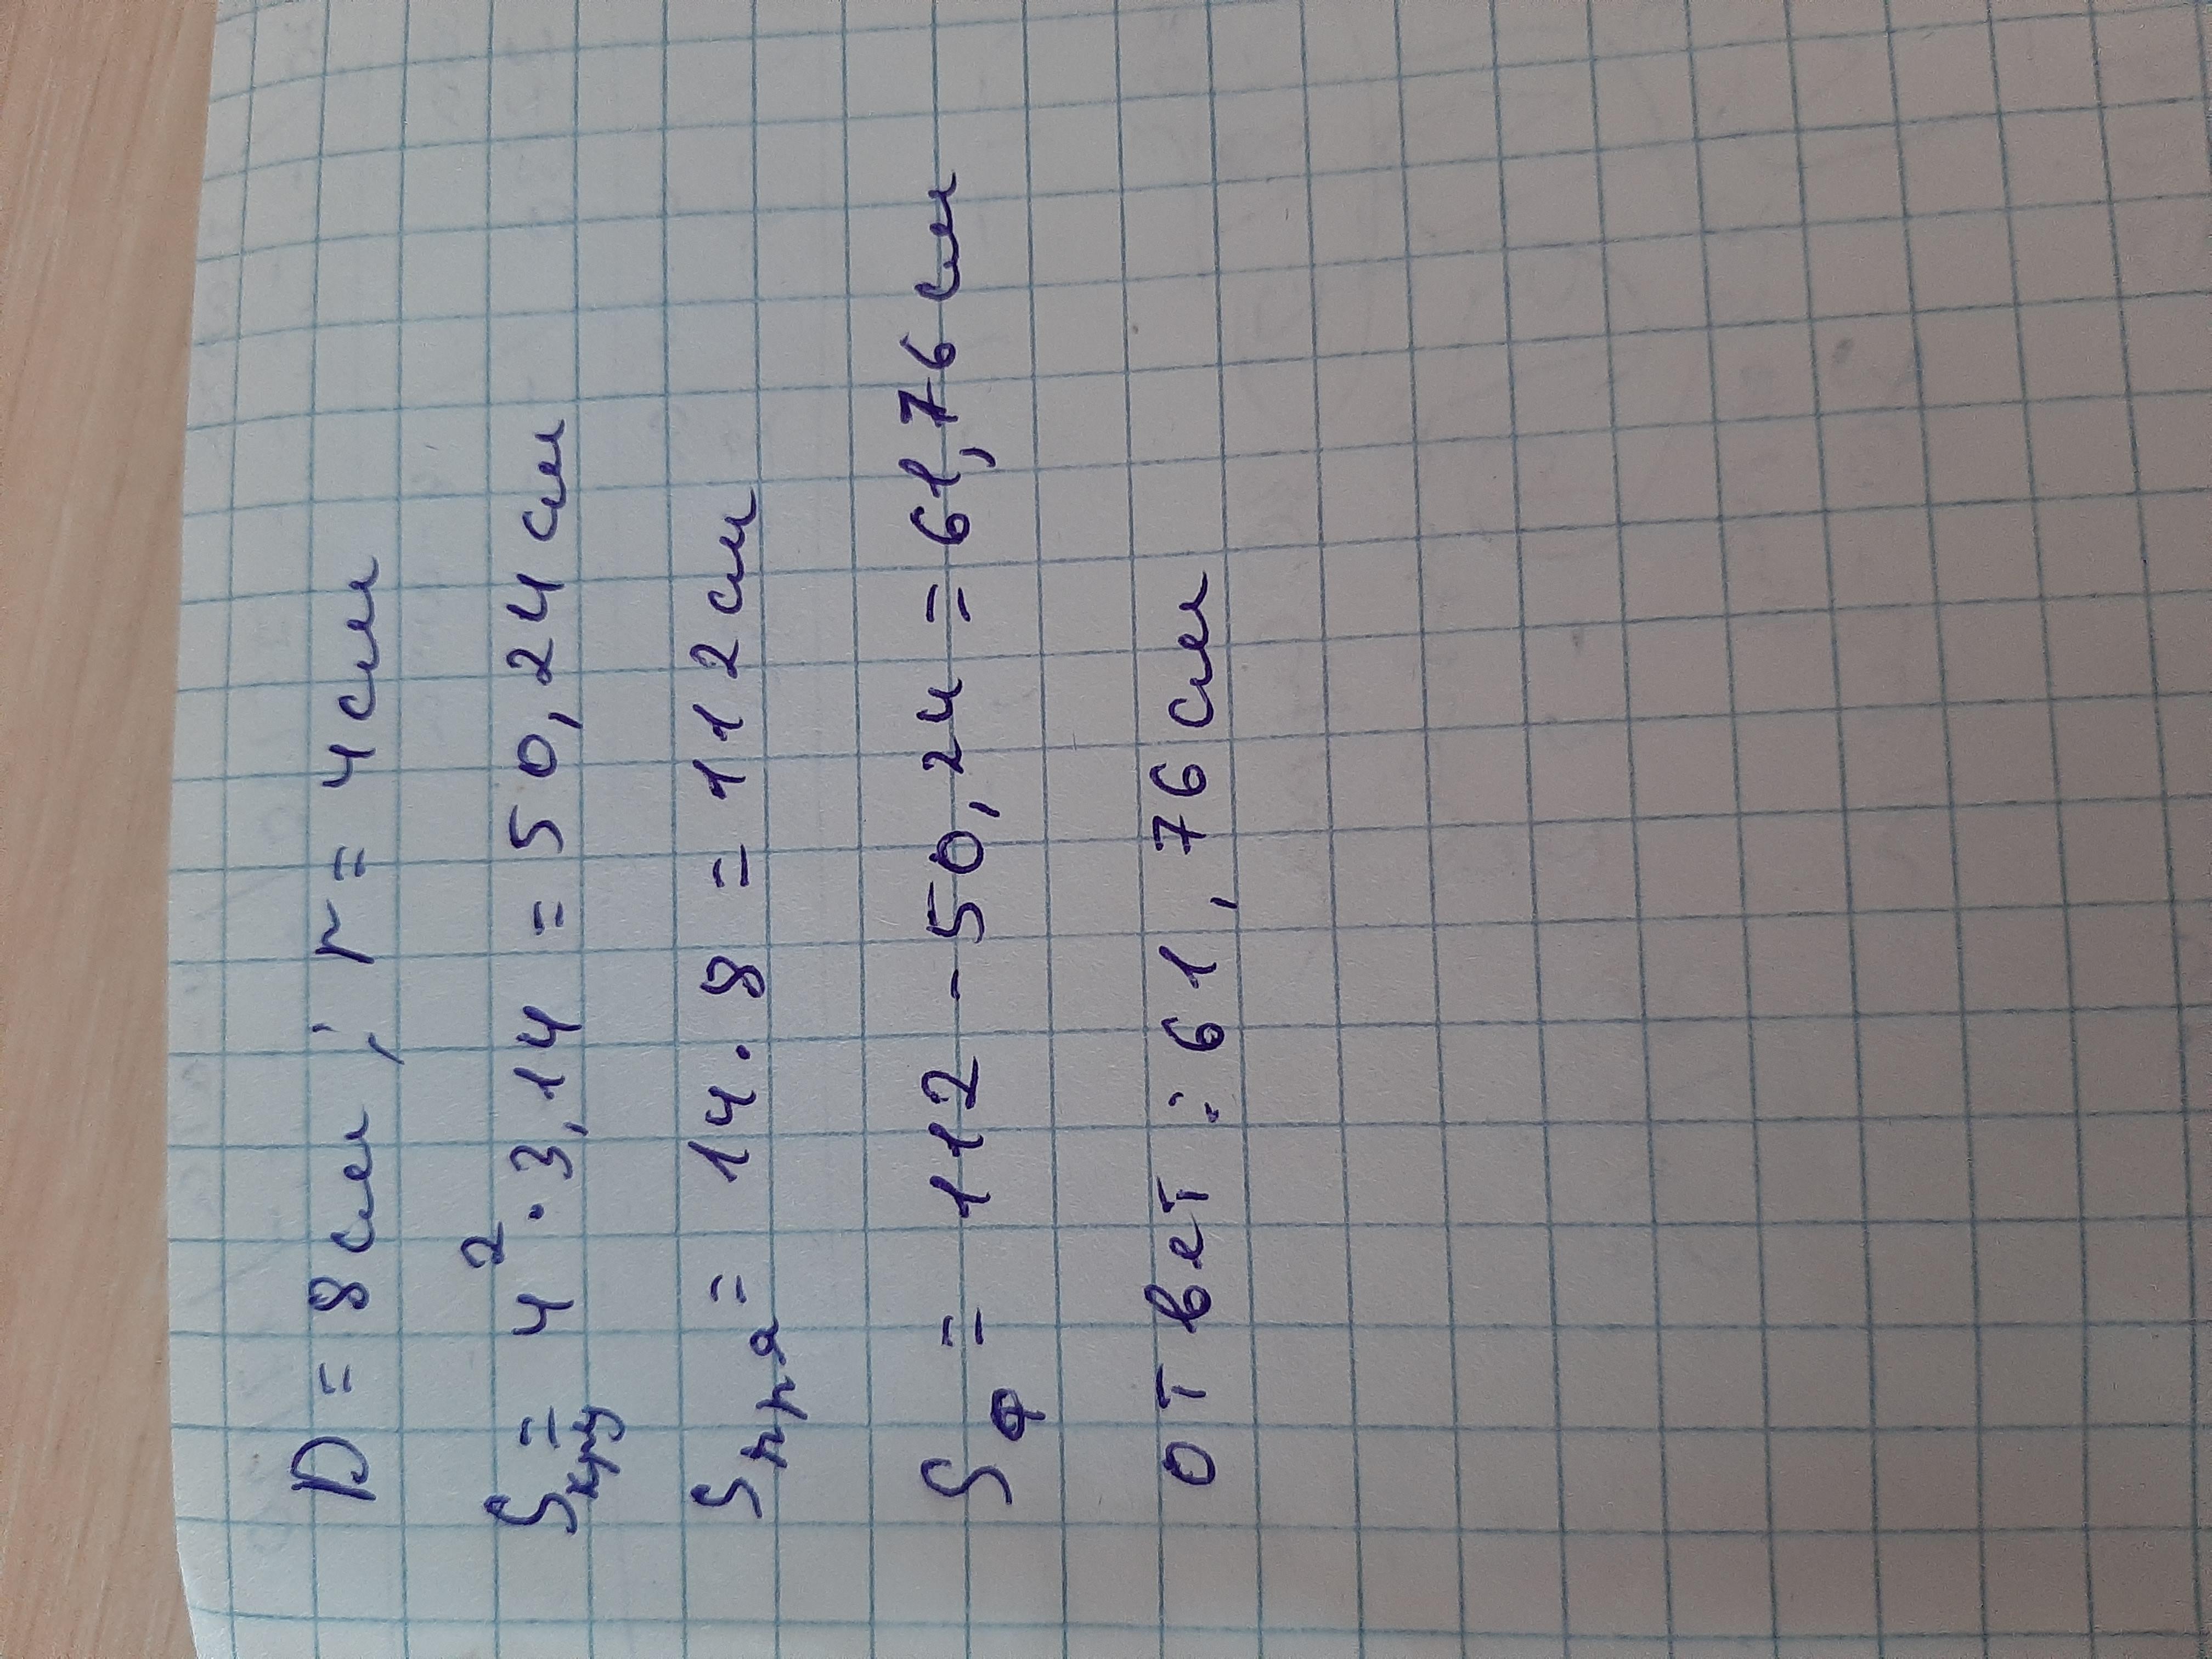 D = 8 см ; r = 4 см
Sкру = 4² · 3,14 = 50,24 см
Sпря = 14 · 8 = 112 см
Sф = 112 - 50,24 = 61,76 см
Ответ : 61,76 см